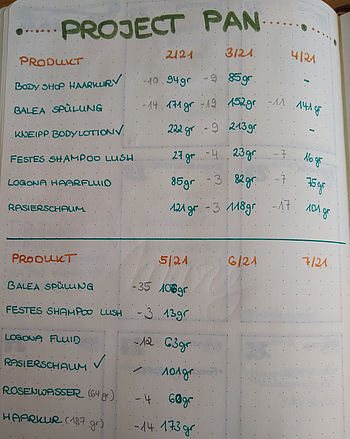 PROJECT PAN
PRODUKT 2/21 3/21 4/21
BODY SHOP HAARKUR✓ -10 94gr -9 85gr -
BALEA SPÜLUNG -14 171gr -19 152gr -11 141gr
KNEIPP BODYLOTION✓ 222gr -9 213gr -
FESTES SHAMPOO LUSH 27gr -4 23gr -7 16gr
LOGONA HAARFLUID 85gr -3 82gr -7 75gr
RASIERSCHAUM 121gr -3 118gr -17 101gr
PRODUKT 5/21 6/21 7/21
BALEA SPÜLUNG -35 106gr
FESTES SHAMPOO LUSH -3 13gr
LOGONA FLUID -12 63gr
RASIERSCHAUM ✓ - 101gr
ROSENWASSER (64gr) -4 60gr
HAARKUR (187 gr) -14 173gr